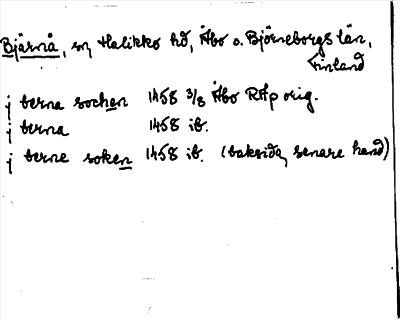 Bjärnå, sn, Halikko hd, Åbo o. Björneborgs län,
Finland
j berna sochen 1458 3/8 Åbo RAp orig.
j berna 1458 ib.
j berne soken 1458 ib. (baksida, senare hand)